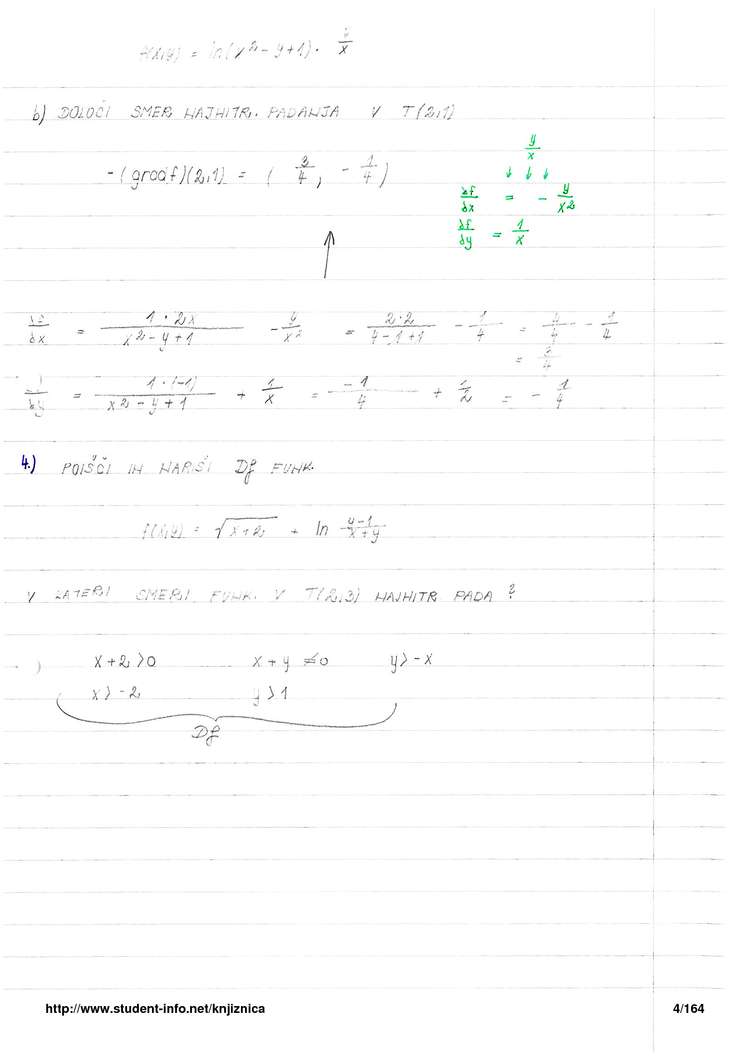 f(x,y) = ln(x² - y+1) · y/x
b) DOLOČI SMER NAJHITR. PADANJA V T(2,1)
-(grad f)(2,1) = ( 3/4, - 1/4 )
y/x
↓ ↓ ↓
∂f/∂x = - y/x²
∂f/∂y = 1/x
∂f/∂x = 1 · 2x / x² - y + 1 - y/x² = 2·2 / 4-1+1 - 1/4 = 4/4 - 1/4
= 3/4
∂y = 1 · (-1) / x² - y + 1 + 1/x = -1/4 + 1/2 = - 1/4
4.) POIŠČI IN NARIŠI Df FUNK.
f(x,y) = √x+2 + ln y-1/x+y
V KATERI SMERI FUNK. V T(2,3) NAJHITR PADA ?
) x+2 > 0 x + y ≠ 0 y > -x
x > -2 y > 1
Df
http://www.student-info.net/knjiznica 4/164